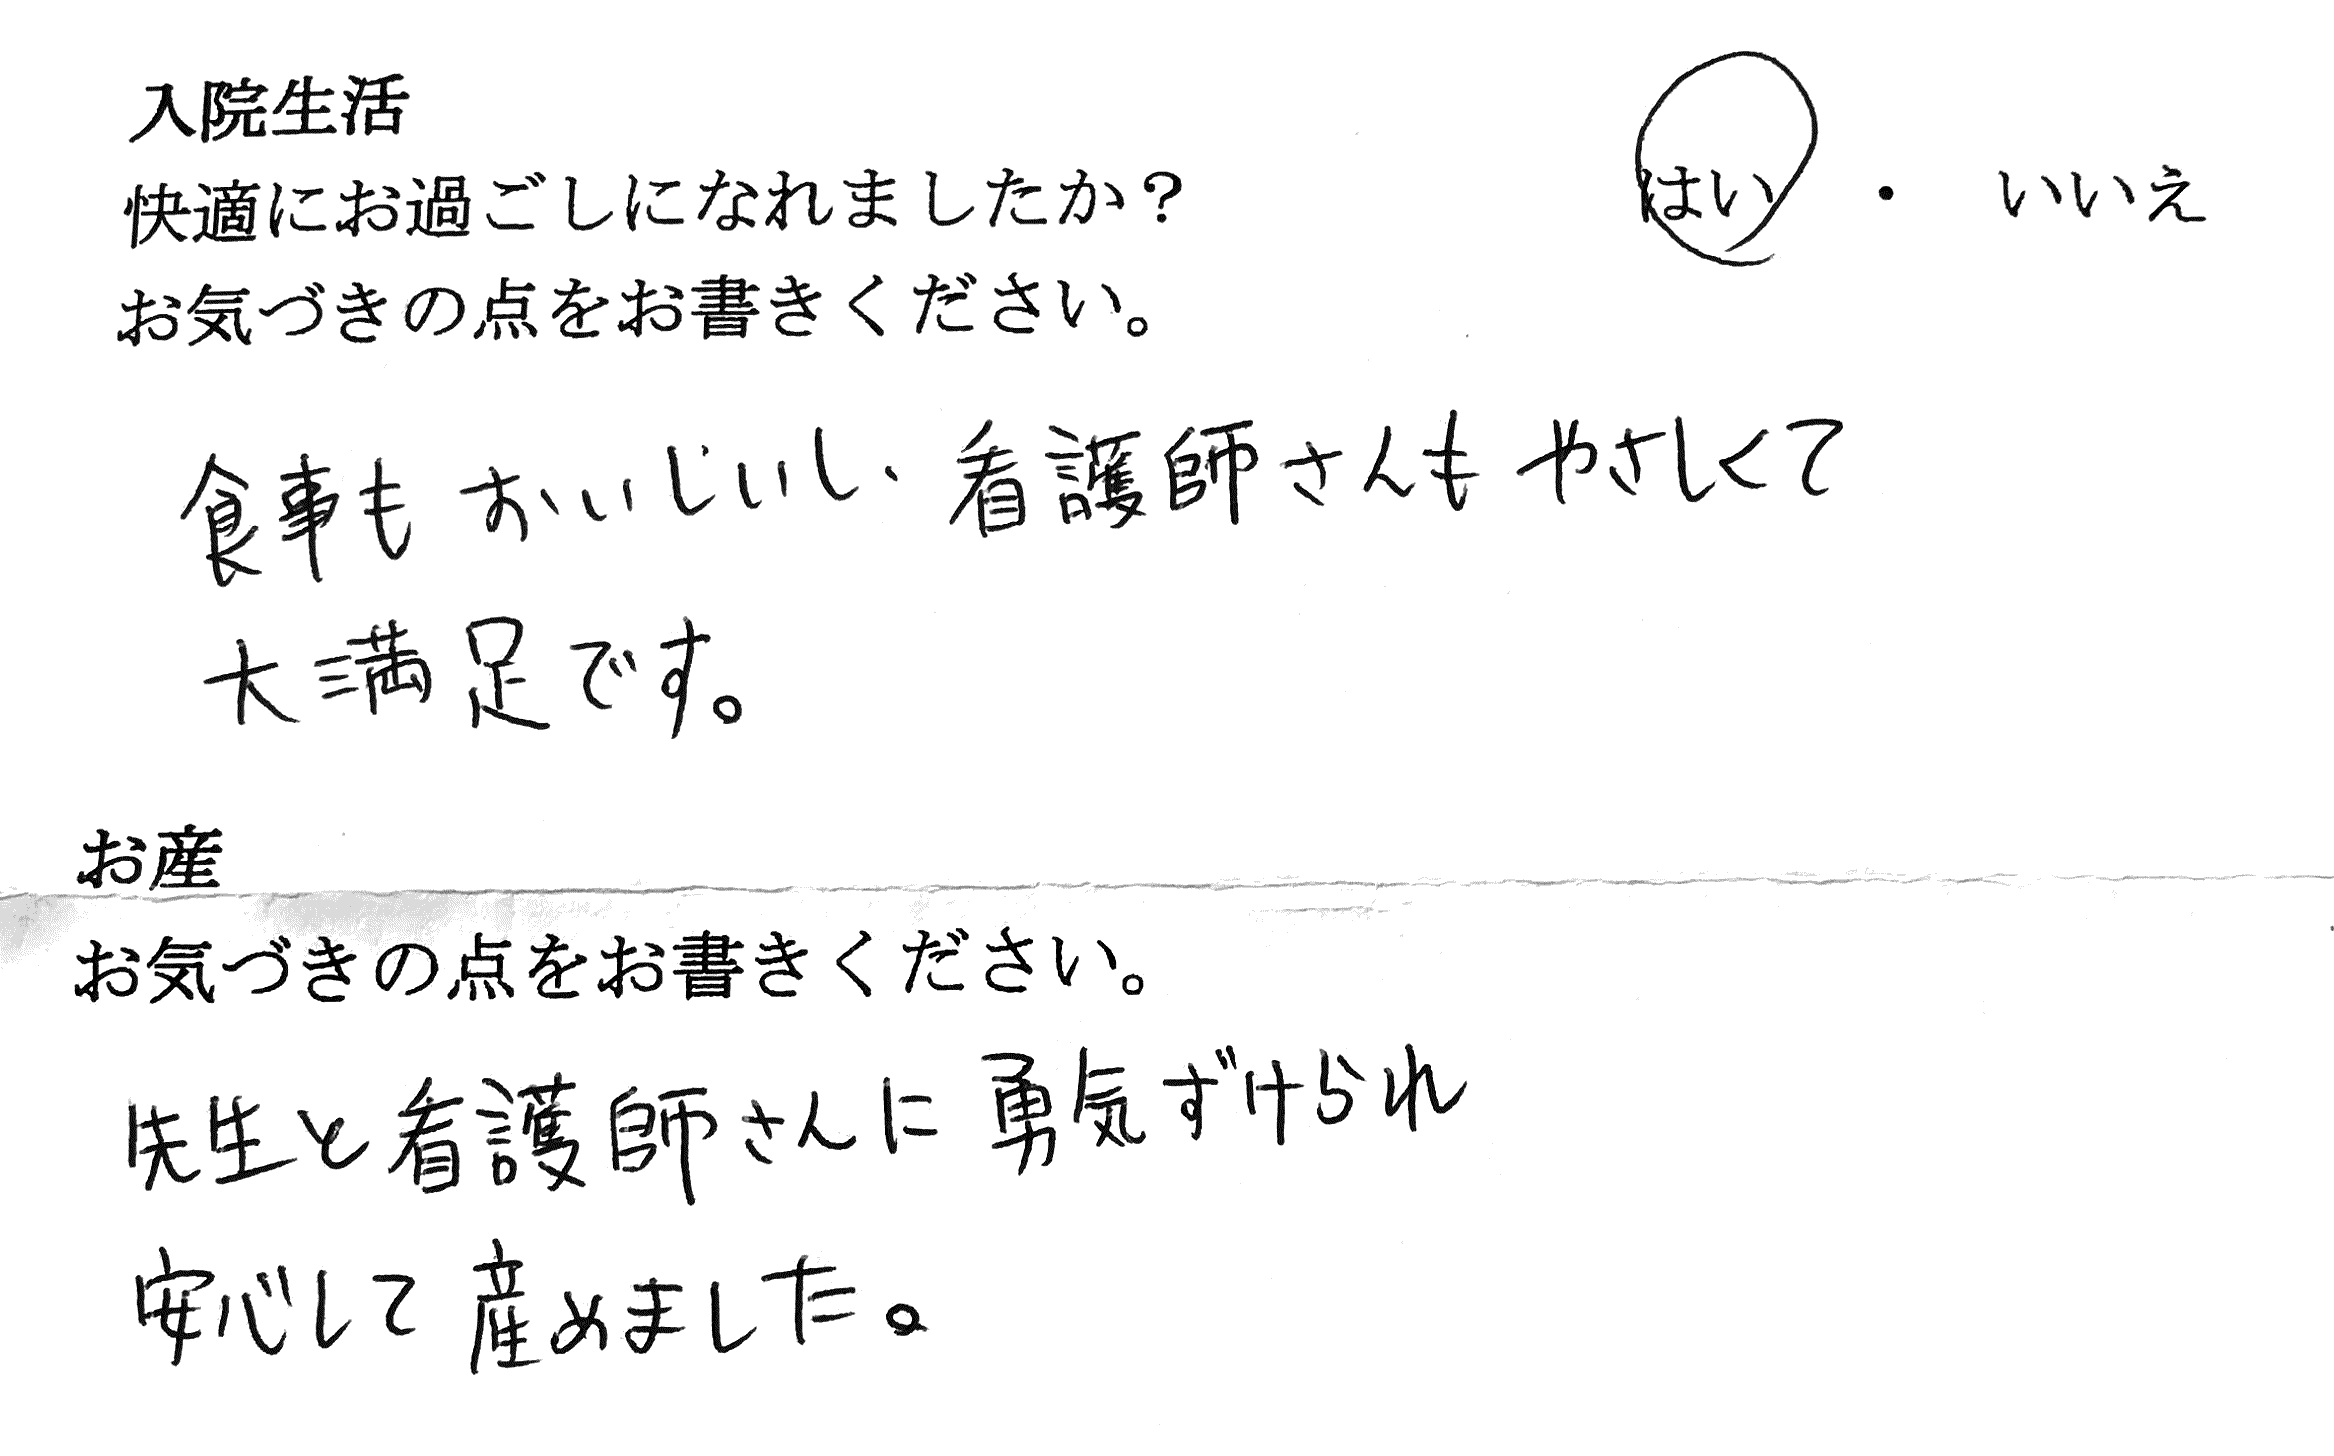 入院生活
快適にお過ごしになれましたか？ はい ・ いいえ
お気づきの点をお書きください。
食事もおいしいし、看護師さんもやさしくて
大満足です。
お産
お気づきの点をお書きください。
先生と看護師さんに勇気ずけられ
安心して産めました。